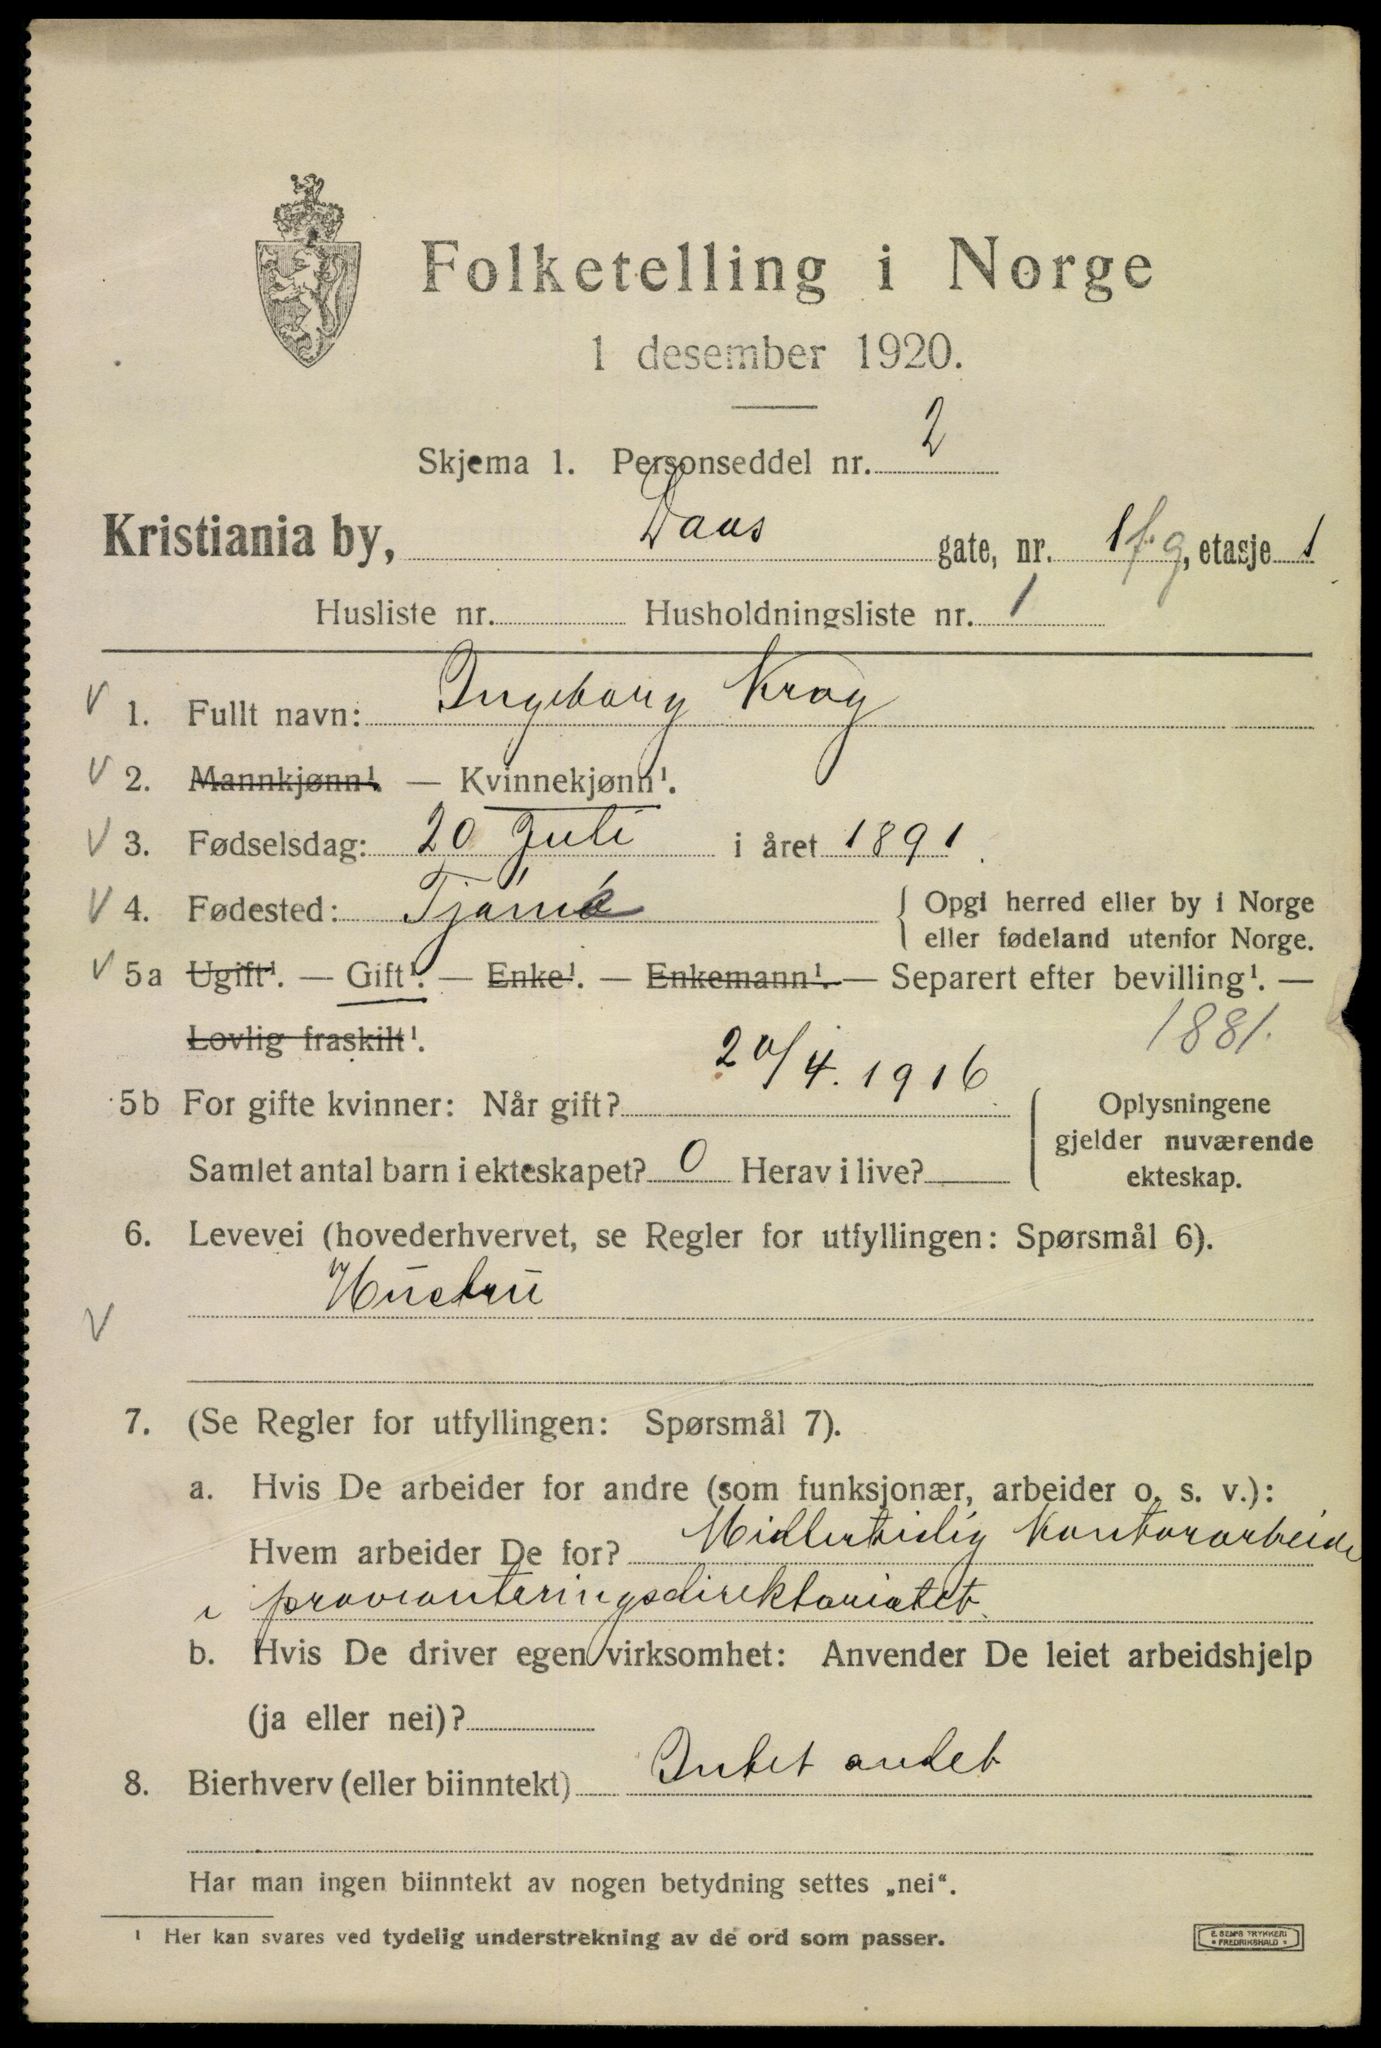 Folketelling i Norge
1 desember 1920.
Skjema 1. Personseddel nr. 2
Kristiania by, Daas gate, nr. 1 f.g, etasje 1
Husliste nr. Husholdningsliste nr. 1
V 1. Fullt navn: Ingeborg Krag
V 2. Mannkjønn¹. — Kvinnekjønn¹.
V 3. Fødselsdag: 20 Juli i året 1891.
V 4. Fødested: Tjømø { Opgi herred eller by i Norge
eller fødeland utenfor Norge.
V 5a Ugift¹. — Gift¹. — Enke¹. — Enkemann¹. — Separert efter bevilling¹. —
Lovlig fraskilt¹. 1881.
5b For gifte kvinner: Når gift? 20/4. 1916 { Oplysningene
gjelder nuværende
Samlet antal barn i ekteskapet? 0 Herav i live? ekteskap.
6. Levevei (hovederhvervet, se Regler for utfyllingen: Spørsmål 6).
V Hustru
7. (Se Regler for utfyllingen: Spørsmål 7).
a. Hvis De arbeider for andre (som funksjonær, arbeider o. s. v.):
Hvem arbeider De for? Midlertidig Kontorarbeide
i provianteringsdirektoriatet.
b. Hvis De driver egen virksomhet: Anvender De leiet arbeidshjelp
(ja eller nei)?
8. Bierhverv (eller biinntekt) Intet andet
Har man ingen biinntekt av nogen betydning settes „nei“.
¹ Her kan svares ved tydelig understrekning av de ord som passer.
E. SEM'S TRYKKERI
• FREDRIKSHALD •